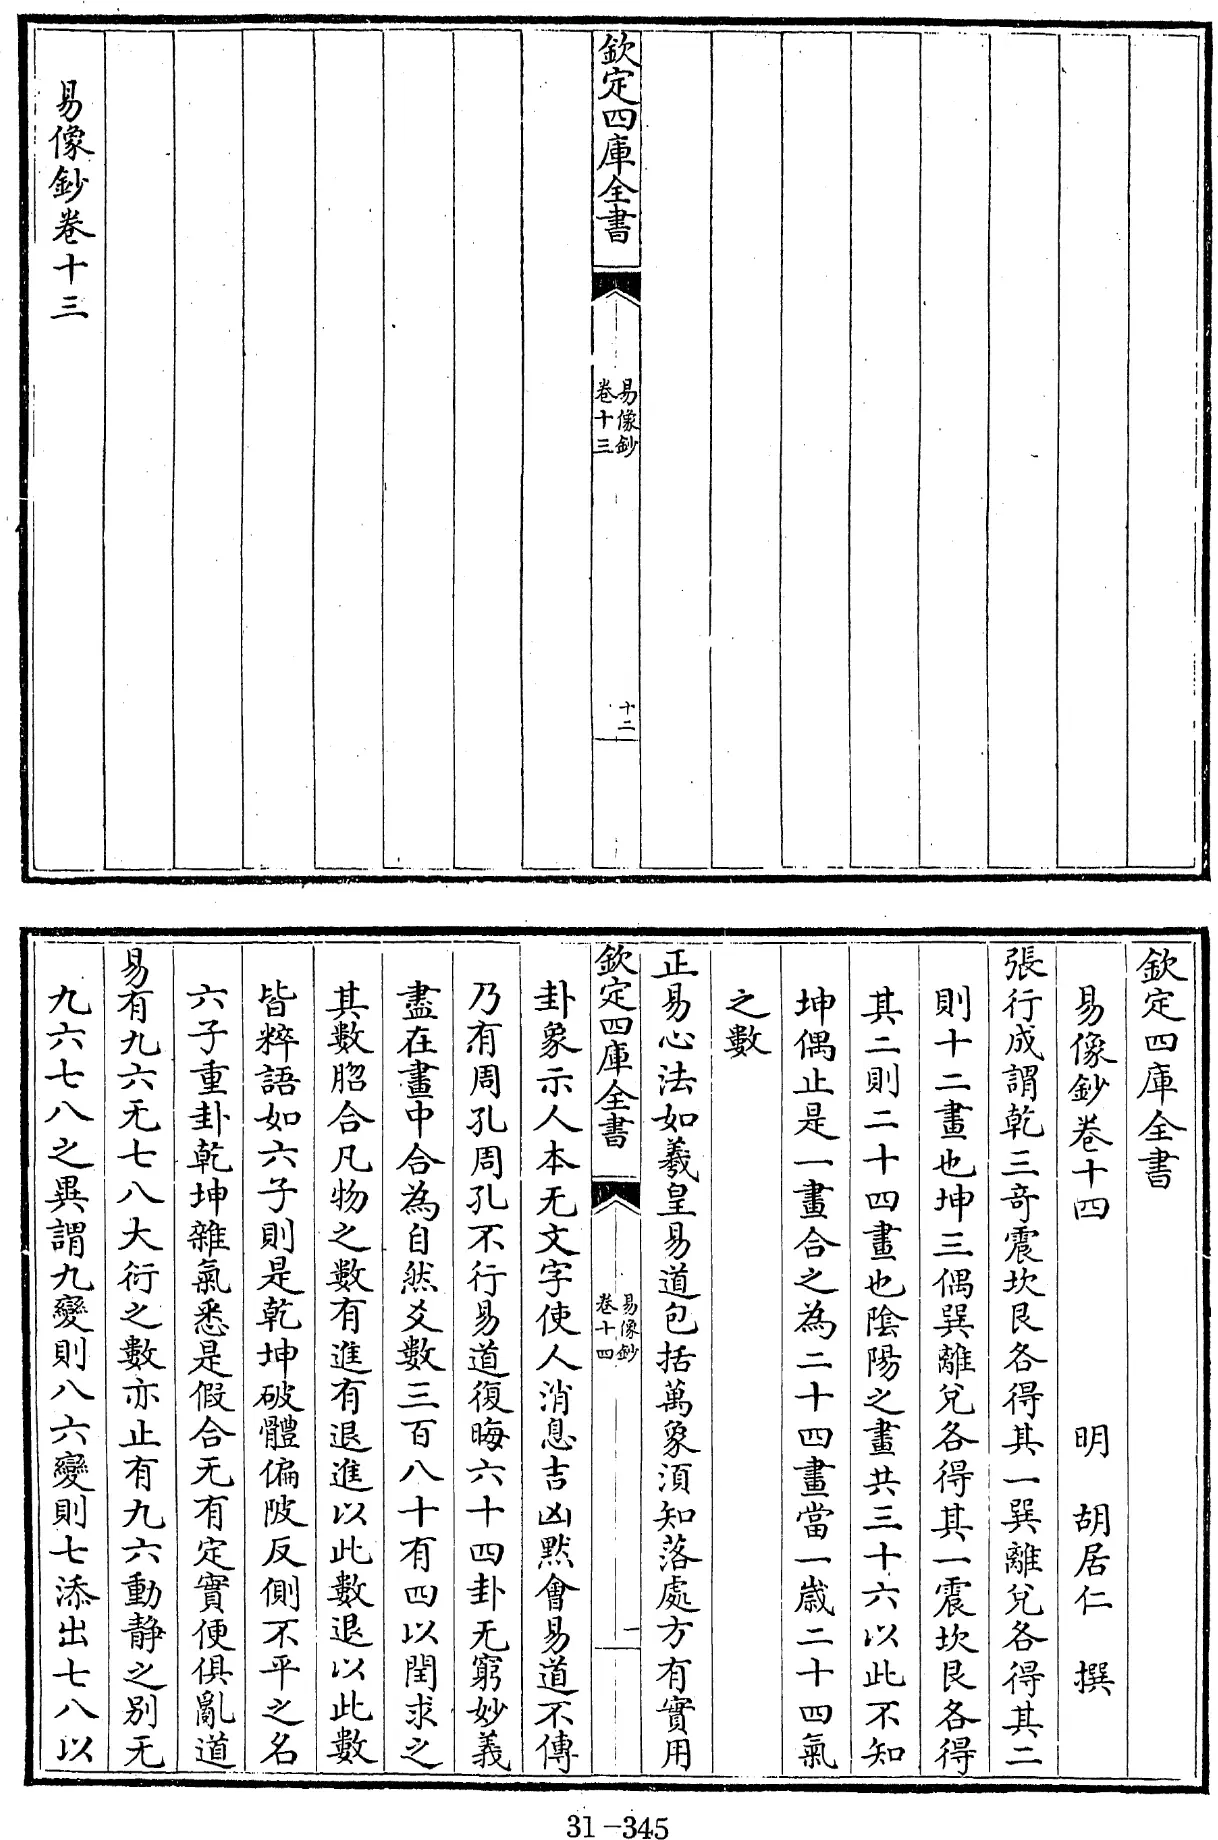 欽定四庫全書
易像鈔
卷十三
十二
易像鈔卷十三
欽定四庫全書
易像鈔卷十四
明 胡居仁 撰
張行成謂乾三竒震坎艮各得其一巽離兌各得其二
則十二畫也坤三偶巽離兌各得其一震坎艮各得
其二則二十四畫也陰陽之畫共三十六以此不知
坤偶止是一畫合之為二十四畫當一歲二十四氣
之數
正易心法如羲皇易道包括萬象須知落處方有實用
欽定四庫全書
易像鈔
卷十四
一
卦象示人本无文字使人消息吉凶黙會易道不傳
乃有周孔周孔不行易道復晦六十四卦无窮妙義
盡在畫中合為自然爻數三百八十有四以閏求之
其數脗合凡物之數有進有退進以此數退以此數
皆粹語如六子則是乾坤破體偏陂反側不平之名
六子重卦乾坤雜氣悉是假合无有定實便俱亂道
易有九六无七八大衍之數亦止有九六動靜之别无
九六七八之異謂九變則八六變則七添出七八以
31-345